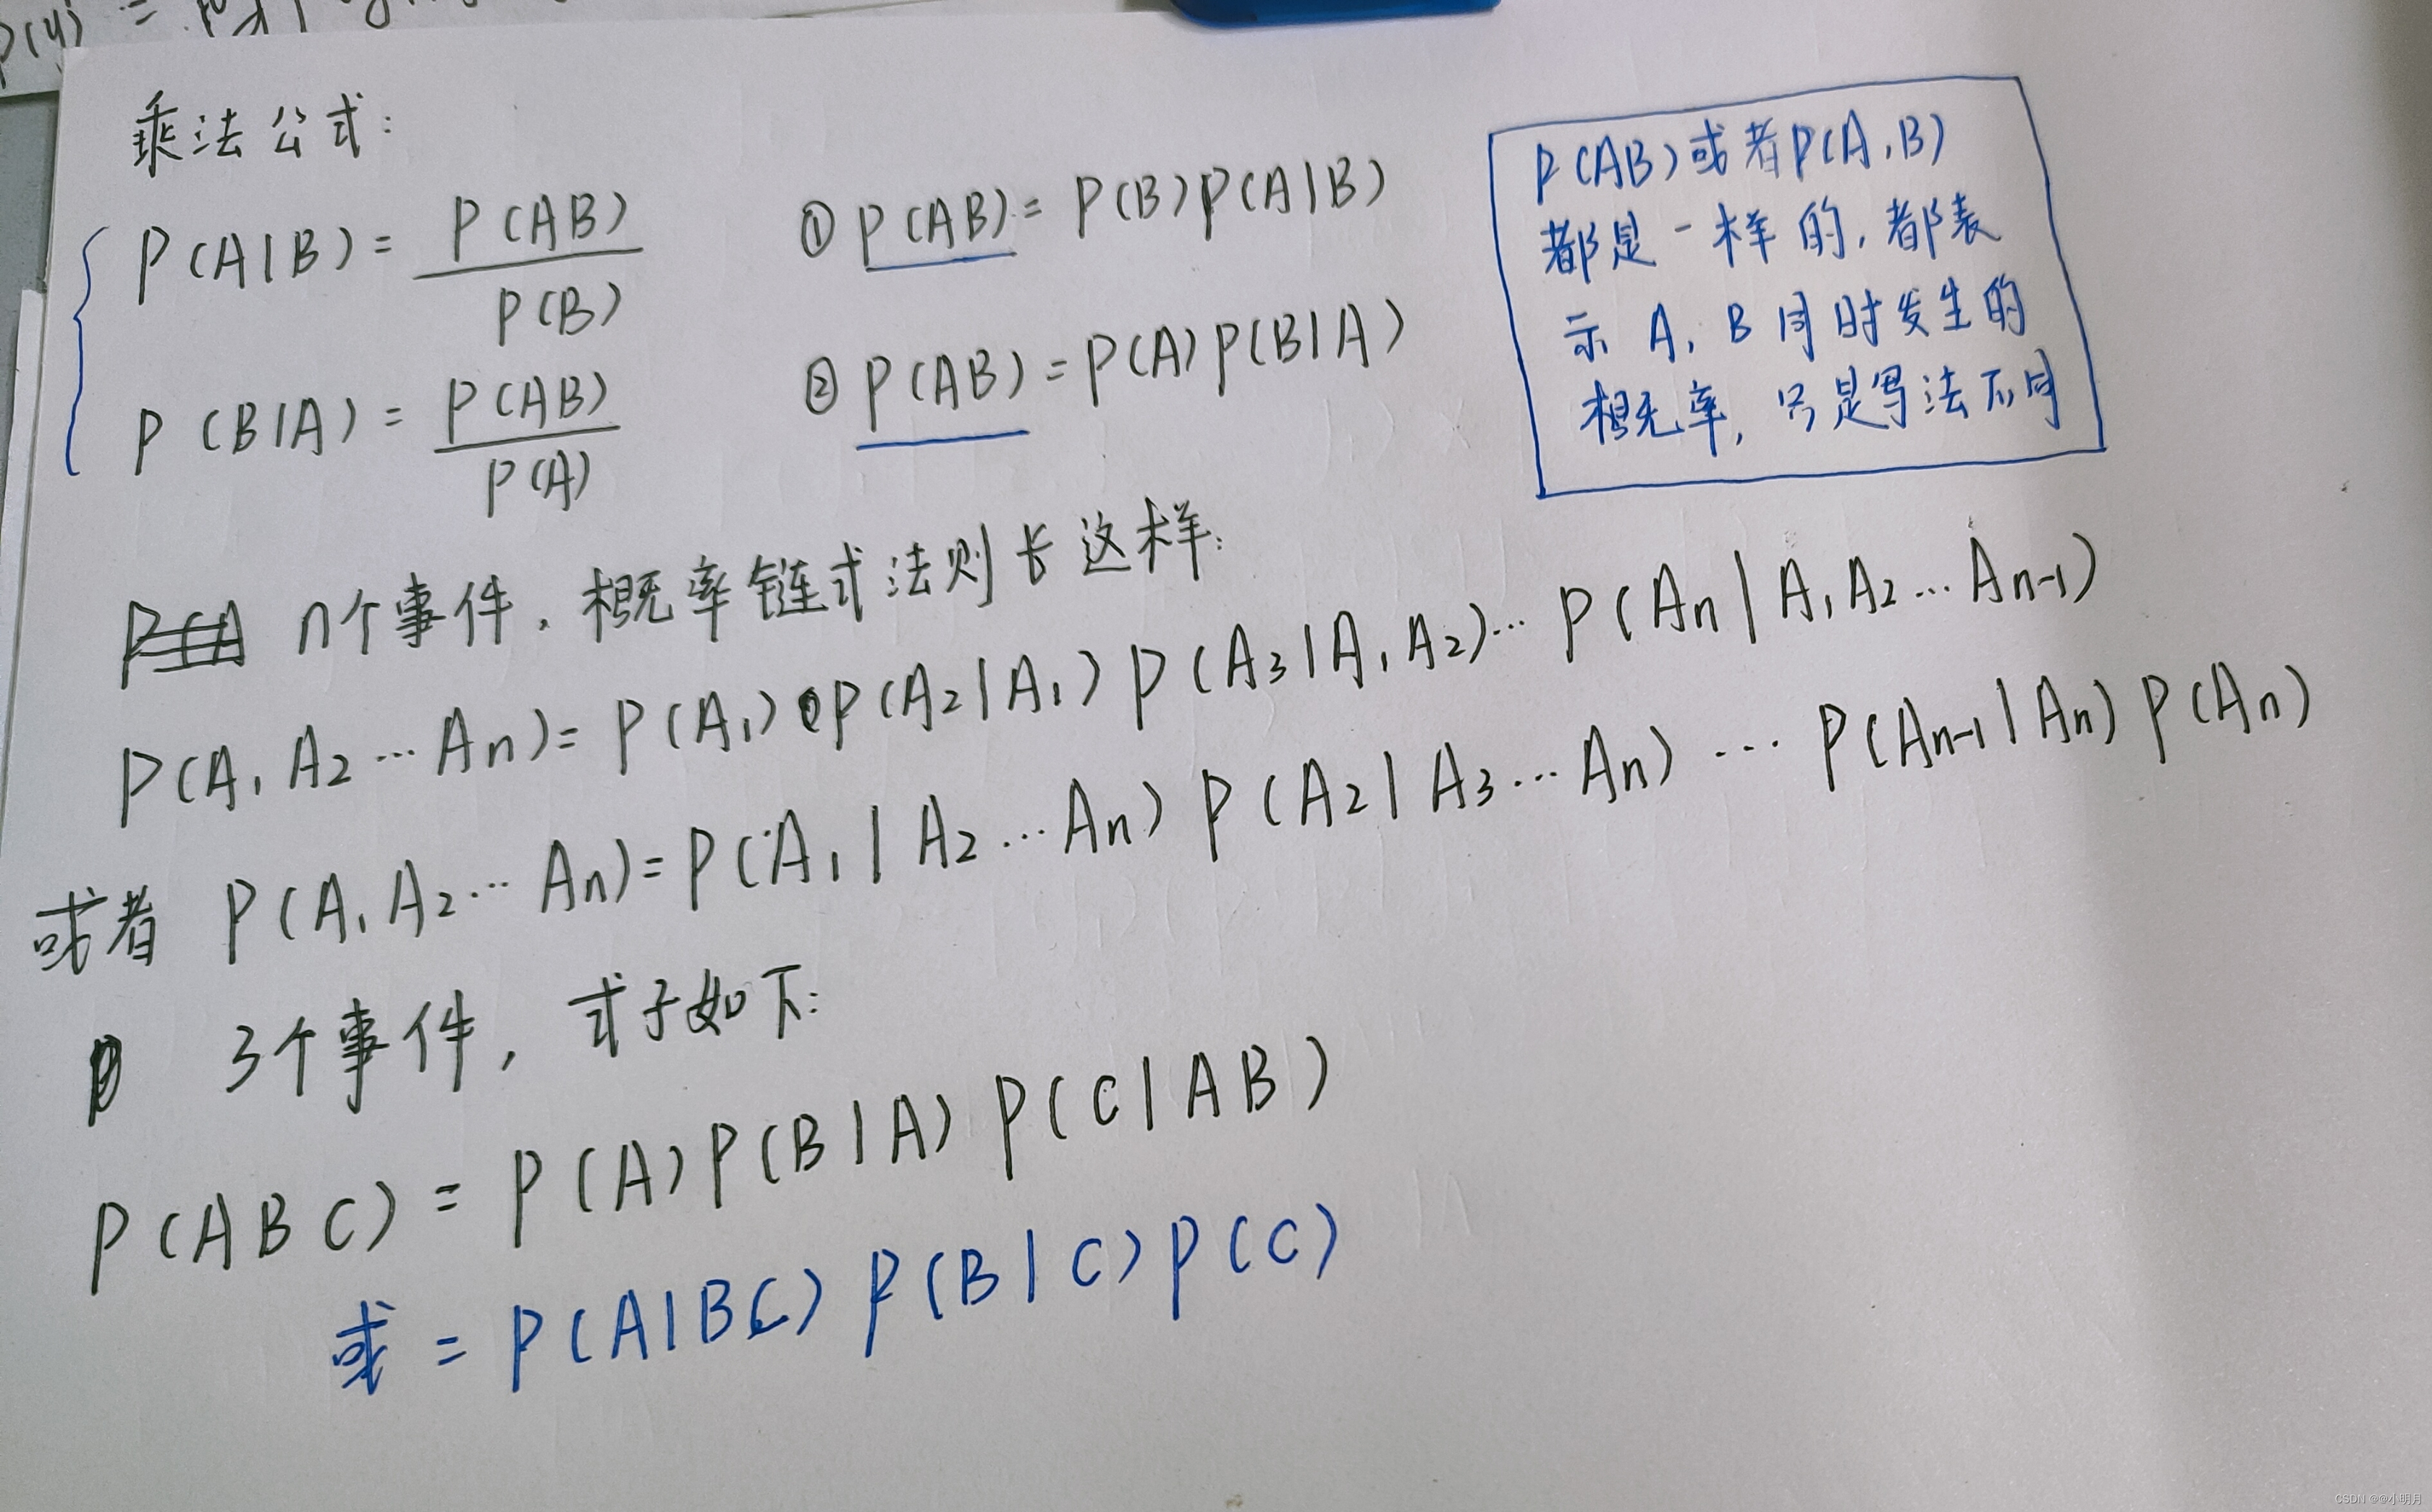 乘法公式:
P(A|B) = P(AB) / P(B)
① P(AB) = P(B)P(A|B)
P(B|A) = P(AB) / P(A)
② P(AB) = P(A)P(B|A)
P(AB)或者P(A,B)
都是一样的,都表
示 A, B 同时发生的
概率, 只是写法不同
n个事件,概率链式法则长这样:
P(A₁A₂…An) = P(A₁)P(A₂|A₁)P(A₃|A₁A₂)…P(An|A₁A₂…An-1)
或者 P(A₁A₂…An) = P(A₁|A₂…An)P(A₂|A₃…An)…P(An-1|An)P(An)
3个事件, 式子如下:
P(ABC) = P(A)P(B|A)P(C|AB)
或 = P(A|BC)P(B|C)P(C)
CSDN @@小明月